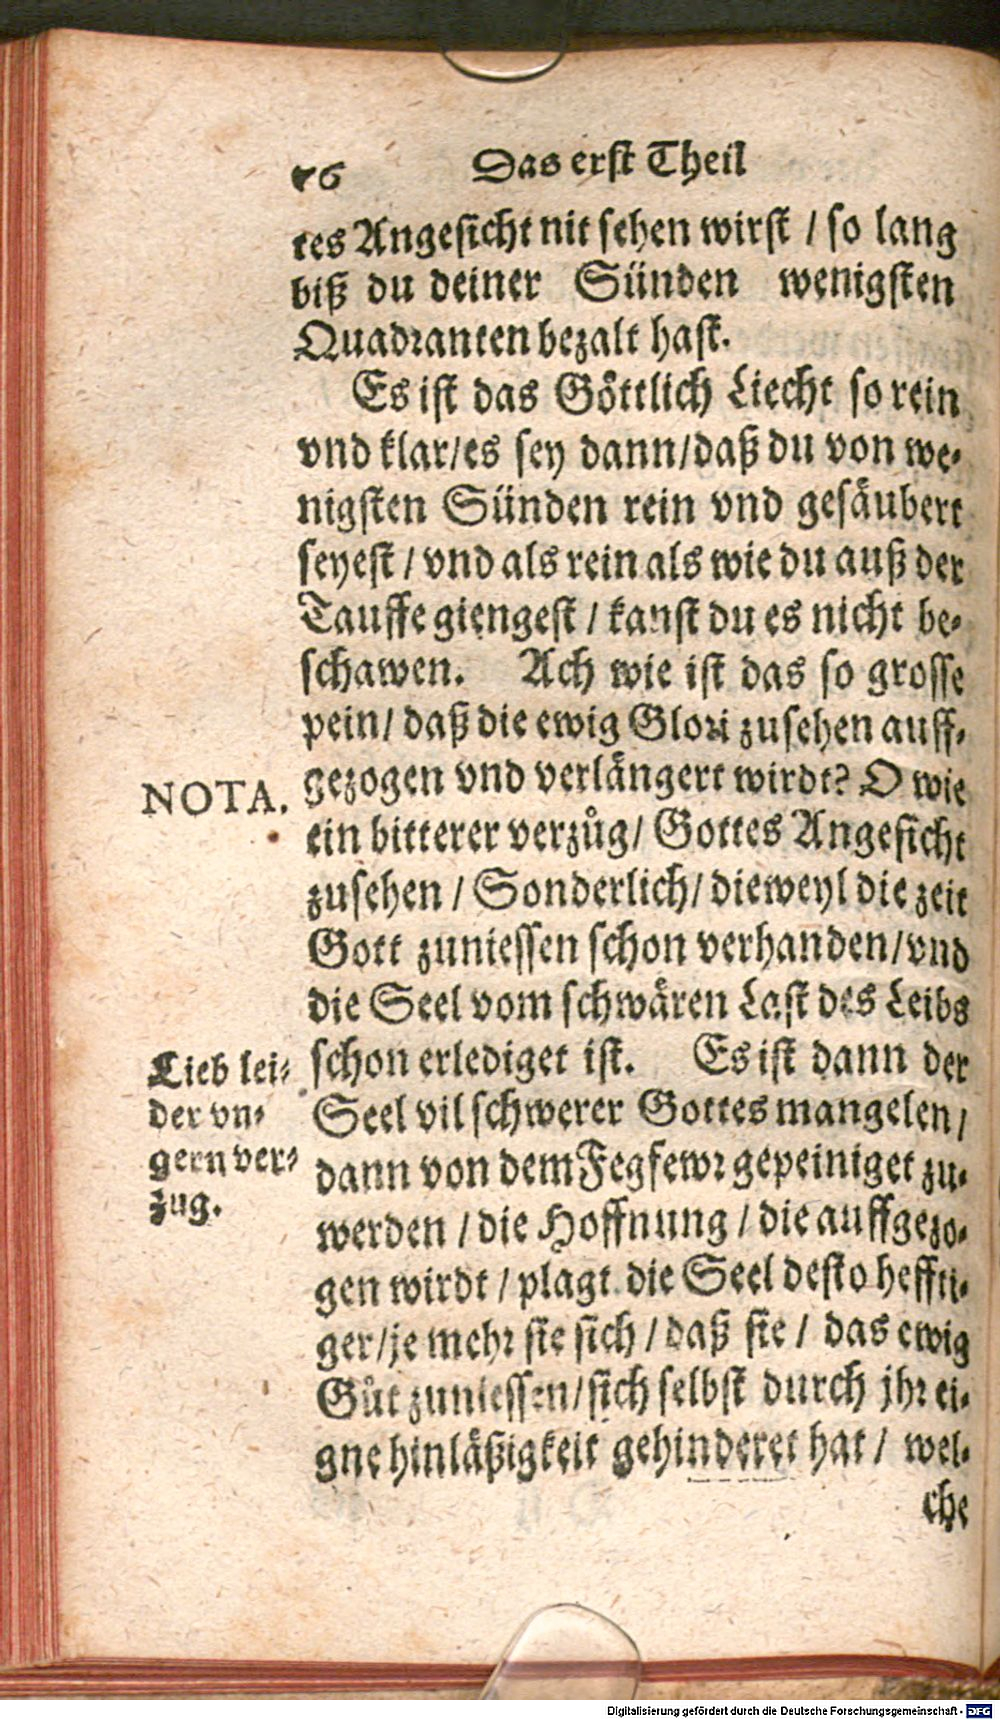 76 Das erst Theil
tes Angesicht nit sehen wirst / so lang
biß du deiner Sünden wenigsten
Quadranten bezalt hast.
Es ist das Göttlich Liecht so rein
vnd klar/es sey dann/daß du von we-
nigsten Sünden rein vnd gesäubert
seyest / vnd als rein als wie du auß der
Tauffe giengest / kanst du es nicht be-
schawen. Ach wie ist das so grosse
pein/ daß die ewig Glori zusehen auff-
NOTA. gezogen vnd verlängert wirdt? O wie
ein bitterer verzůg/ Gottes Angesicht
zusehen / Sonderlich/ dieweyl die zeit
Gott zuniessen schon verhanden/vnd
die Seel vom schwären Last des Leibs
Lieb lei-
der vn-
gern ver-
zug.
schon erlediget ist. Es ist dann der
Seel vil schwerer Gottes mangelen/
dann von dem Fegfewr gepeiniget zu-
werden / die Hoffnung / die auffgezo-
gen wirdt / plagt die Seel desto heffti-
ger/je mehr sie sich / daß sie / das ewig
Gůt zuniessen/sich selbst durch jhr ei-
gne hinläßigkeit gehinderet hat / wel-
che
Digitalisierung gefördert durch die Deutsche Forschungsgemeinschaft - DFG